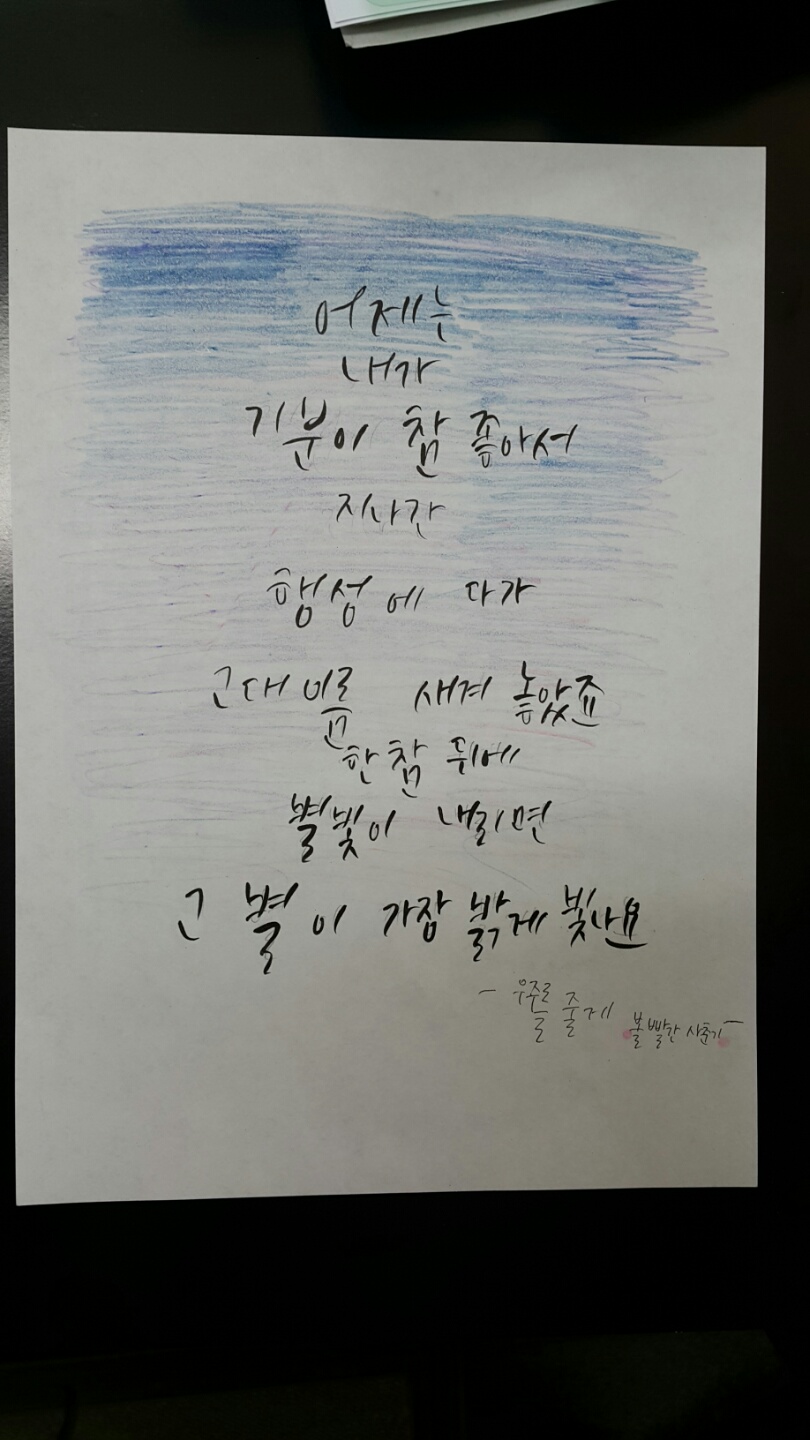 어제는
내가
기분이 참 좋아서
지나간
행성에 다가
그대 이름 새겨 놓았죠
한참 뒤에
별빛이 내리면
그 별이 가장 밝게 빛나요
- 우주를 줄게 볼빨간 사춘기 -